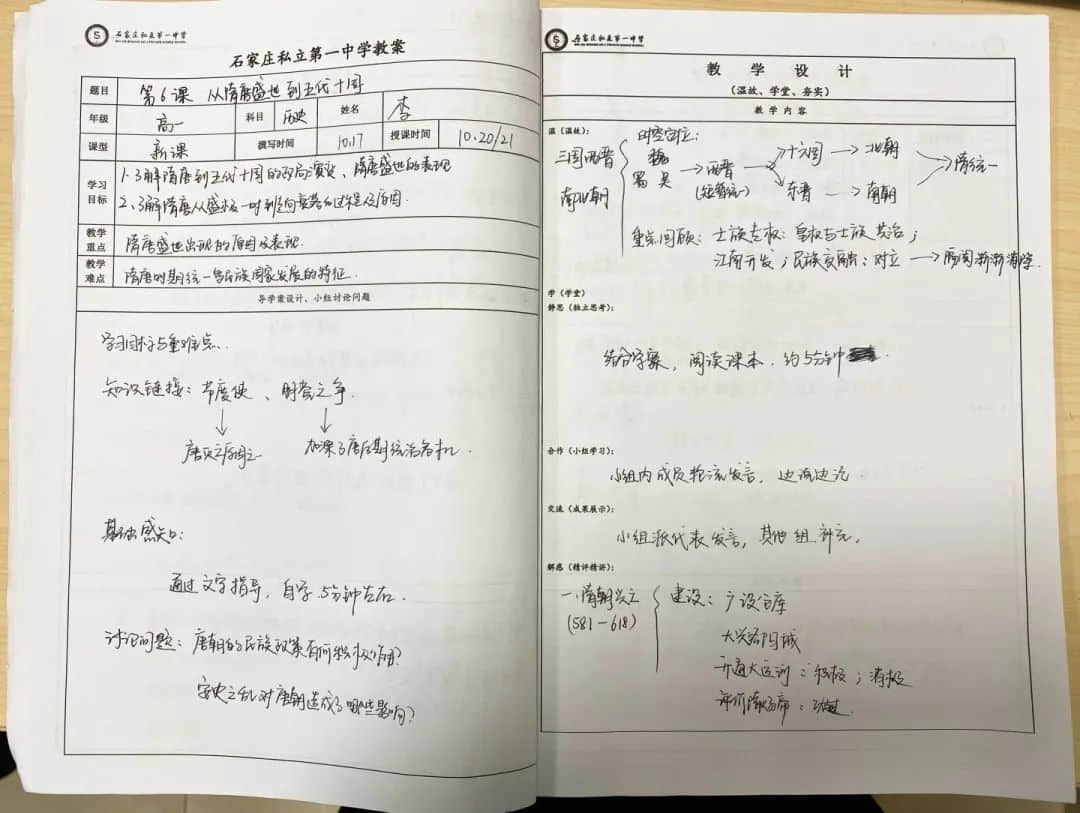 石家庄私立第一中学
石家庄私立第一中学教案
题目 第6课 从隋唐盛世到五代十国
年级 高一 科目 历史 姓名 李
课型 新课 撰写时间 10.17 授课时间 10.20/21
学习目标 1、了解隋唐到五代十国的政局演变、隋唐盛世的表现
2、了解隋唐从盛极一时到走向衰落的过程及原因.
教学重点 隋唐盛世出现的原因及表现.
教学难点 隋唐时期统一多民族国家发展的特征.
导学案设计、小组讨论问题
学习目标与重难点.
知识链接：节度使、朋党之争.
唐灭亡原因之一 加深了唐后期统治危机.
基础感知：
通过文字指导，自学5分钟左右.
讨论问题：唐朝的民族政策有何积极作用？
安史之乱对唐朝造成了哪些影响？
石家庄私立第一中学
教 学 设 计
（温故、学堂、夯实）
教 学 内 容
温（温故）：
三国两晋南北朝
时空定位：
魏 蜀 吴 → 西晋（短暂统一） → 十六国 → 北朝 → 隋统一
→ 东晋 → 南朝
重点回顾：士族专权：皇权与士族共治；
江南开发；民族交融：对立 → 隔阂渐渐消除.
学（学堂）
静思（独立思考）：
结合学案，阅读课本，约5分钟
合作（小组学习）：
小组内成员轮流发言，边说边记
交流（成果展示）：
小组派代表发言，其他组补充.
解惑（精评精讲）：
一、隋朝兴亡
(581－618)
建设：广设仓库
大兴洛阳城
开通大运河：积极；消极
评价隋炀帝：功过.